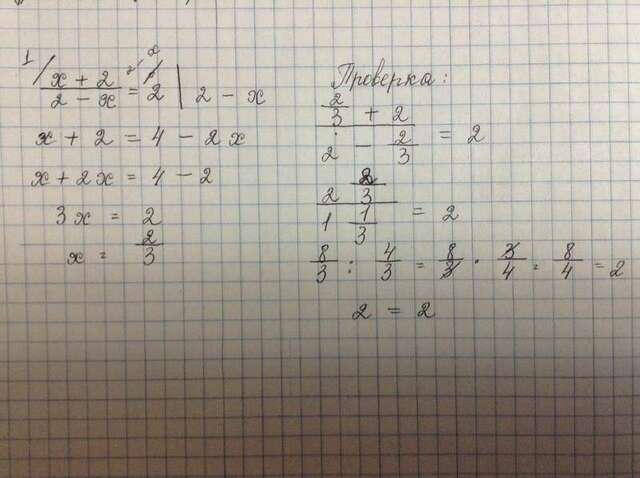 1/ (x + 2)/(2 - x) = 2 | 2 - x
x + 2 = 4 - 2x
x + 2x = 4 - 2
3x = 2
x = 2/3
Проверка:
(2/3 + 2)/(2 - 2/3) = 2
(2 2/3)/(1 1/3) = 2
8/3 : 4/3 = 8/3 · 3/4 = 8/4 = 2
2 = 2